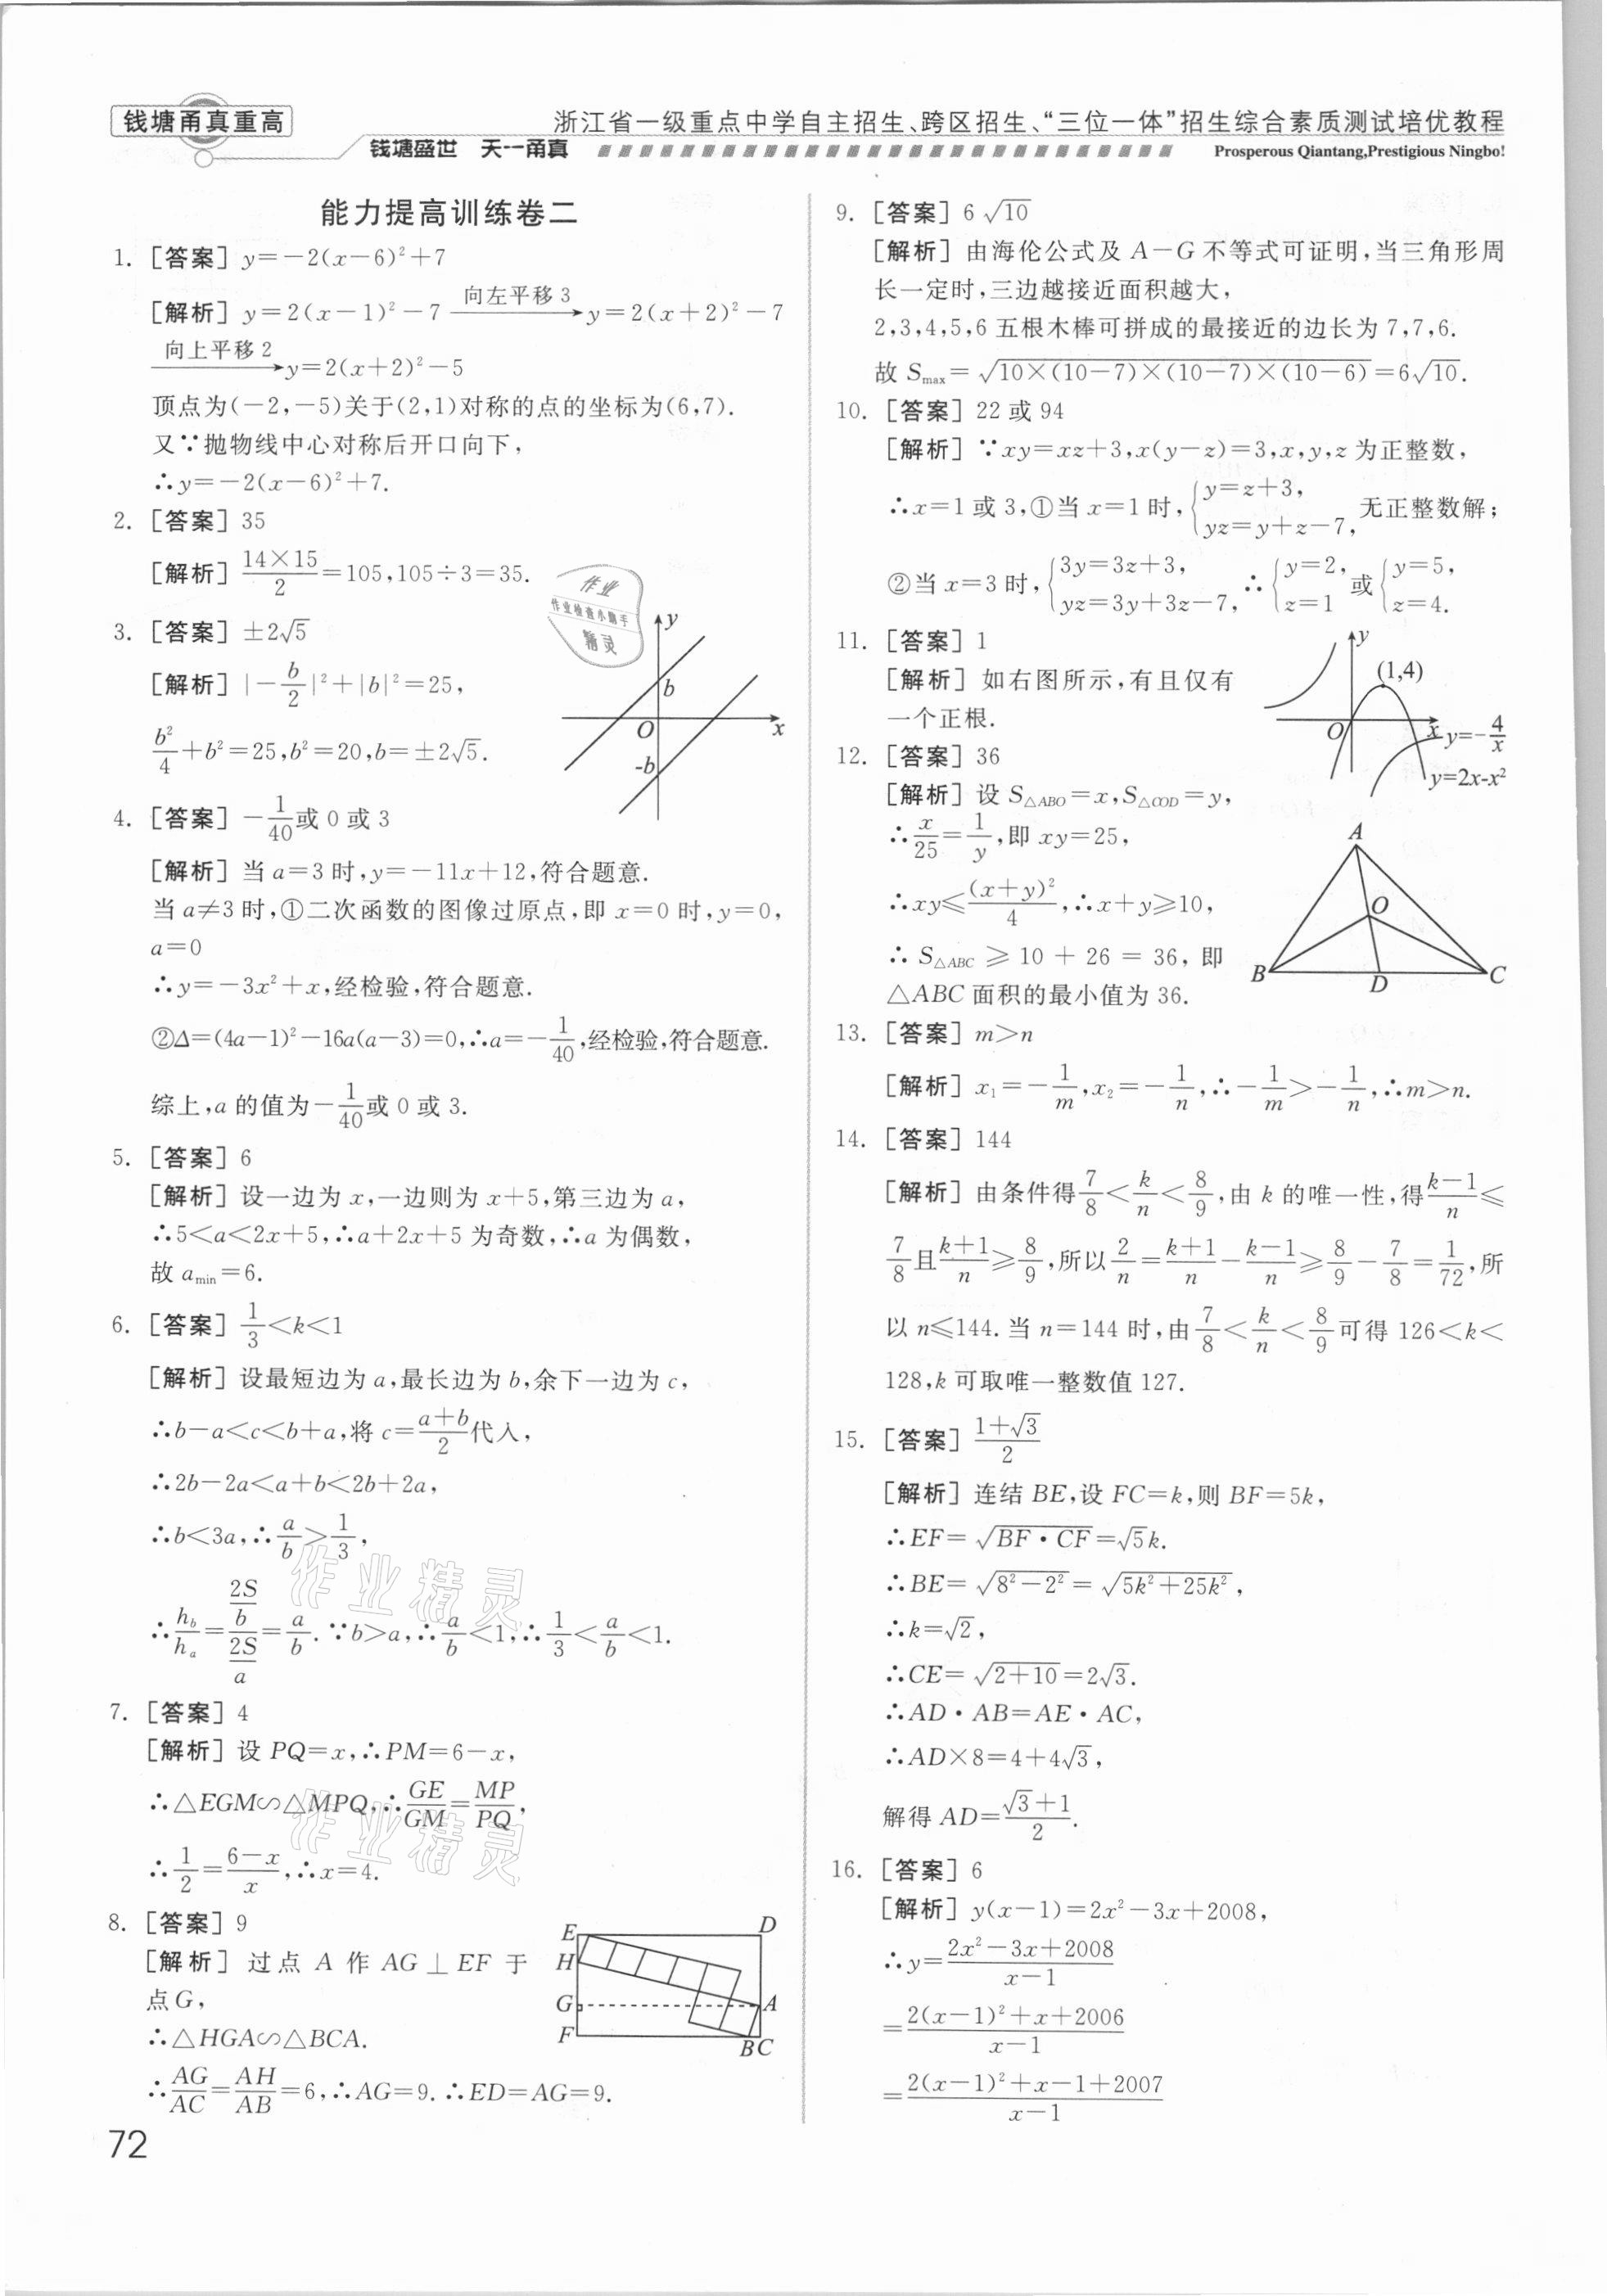 钱塘甬真重高
浙江省一级重点中学自主招生、跨区招生、“三位一体”招生综合素质测试培优教程
钱塘盛世 天一甬真
Prosperous Qiantang,Prestigious Ningbo!
能力提高训练卷二
1. [答案] y=-2(x-6)²+7
[解析] y=2(x-1)²-7 —向左平移3→ y=2(x+2)²-7
—向上平移2→ y=2(x+2)²-5
顶点为(-2,-5)关于(2,1)对称的点的坐标为(6,7).
又∵抛物线中心对称后开口向下,
∴y=-2(x-6)²+7.
2. [答案] 35
[解析] 14×15/2=105,105÷3=35.
3. [答案] ±2√5
[解析] |-b/2|²+|b|²=25,
b²/4+b²=25,b²=20,b=±2√5.
y
b
O
x
-b
4. [答案] -1/40或0或3
[解析] 当a=3时,y=-11x+12,符合题意.
当a≠3时,①二次函数的图像过原点,即x=0时,y=0,
a=0
∴y=-3x²+x,经检验,符合题意.
②Δ=(4a-1)²-16a(a-3)=0,∴a=-1/40,经检验,符合题意.
综上,a的值为-1/40或0或3.
5. [答案] 6
[解析] 设一边为x,一边则为x+5,第三边为a,
∴5<a<2x+5,∴a+2x+5为奇数,∴a为偶数,
故a_min=6.
6. [答案] 1/3<k<1
[解析] 设最短边为a,最长边为b,余下一边为c,
∴b-a<c<b+a,将c=(a+b)/2代入,
∴2b-2a<a+b<2b+2a,
∴b<3a,∴a/b>1/3,
∴h_b/h_a=(2S/b)/(2S/a)=a/b.∵b>a,∴a/b<1,∴1/3<a/b<1.
7. [答案] 4
[解析] 设PQ=x,∴PM=6-x,
∴△EGM∽△MPQ,∴GE/GM=MP/PQ,
∴1/2=(6-x)/x,∴x=4.
8. [答案] 9
[解析] 过点A作AG⊥EF于
点G,
∴△HGA∽△BCA.
∴AG/AC=AH/AB=6,∴AG=9.∴ED=AG=9.
E
D
H
G
A
F
B C
72
9. [答案] 6√10
[解析] 由海伦公式及A-G不等式可证明,当三角形周
长一定时,三边越接近面积越大,
2,3,4,5,6五根木棒可拼成的最接近的边长为7,7,6.
故S_max=√(10×(10-7)×(10-7)×(10-6))=6√10.
10. [答案] 22或94
[解析] ∵xy=xz+3,x(y-z)=3,x,y,z为正整数,
∴x=1或3,①当x=1时,{y=z+3, yz=y+z-7, 无正整数解;
②当x=3时,{3y=3z+3, yz=3y+3z-7, ∴{y=2, z=1 或{y=5, z=4.
11. [答案] 1
[解析] 如右图所示,有且仅有
一个正根.
y
(1,4)
O
x
y=-4/x
y=2x-x²
12. [答案] 36
[解析] 设S△ABO=x,S△COD=y,
∴x/25=1/y,即xy=25,
∴xy≤(x+y)²/4,∴x+y≥10,
∴S△ABC≥10+26=36,即
△ABC面积的最小值为36.
A
O
B
D
C
13. [答案] m>n
[解析] x₁=-1/m,x₂=-1/n,∴-1/m>-1/n,∴m>n.
14. [答案] 144
[解析] 由条件得7/8<k/n<8/9,由k的唯一性,得(k-1)/n≤
7/8且(k+1)/n≥8/9,所以2/n=(k+1)/n-(k-1)/n≥8/9-7/8=1/72,所
以n≤144.当n=144时,由7/8<k/n<8/9可得126<k<
128,k可取唯一整数值127.
15. [答案] (1+√3)/2
[解析] 连结BE,设FC=k,则BF=5k,
∴EF=√(BF·CF)=√5k.
∴BE=√(8²-2²)=√(5k²+25k²),
∴k=√2,
∴CE=√(2+10)=2√3.
∴AD·AB=AE·AC,
∴AD×8=4+4√3,
解得AD=(√3+1)/2.
16. [答案] 6
[解析] y(x-1)=2x²-3x+2008,
∴y=(2x²-3x+2008)/(x-1)
=(2(x-1)²+x+2006)/(x-1)
=(2(x-1)²+x-1+2007)/(x-1)
作业
作业检查小助手
精灵
作业精灵
作业精灵